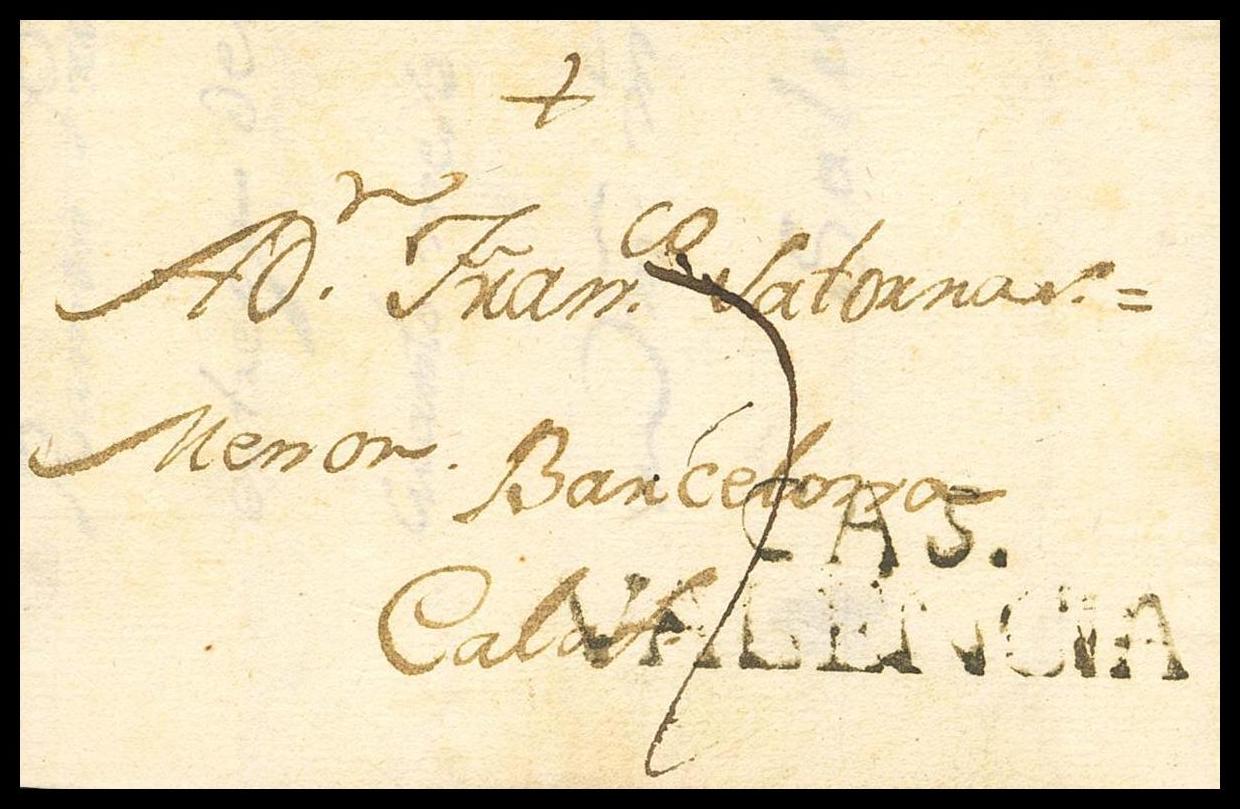 +
A Dn. Franco Satornas.=
Menor. Barcelona
CAS.
VALENCIA
7